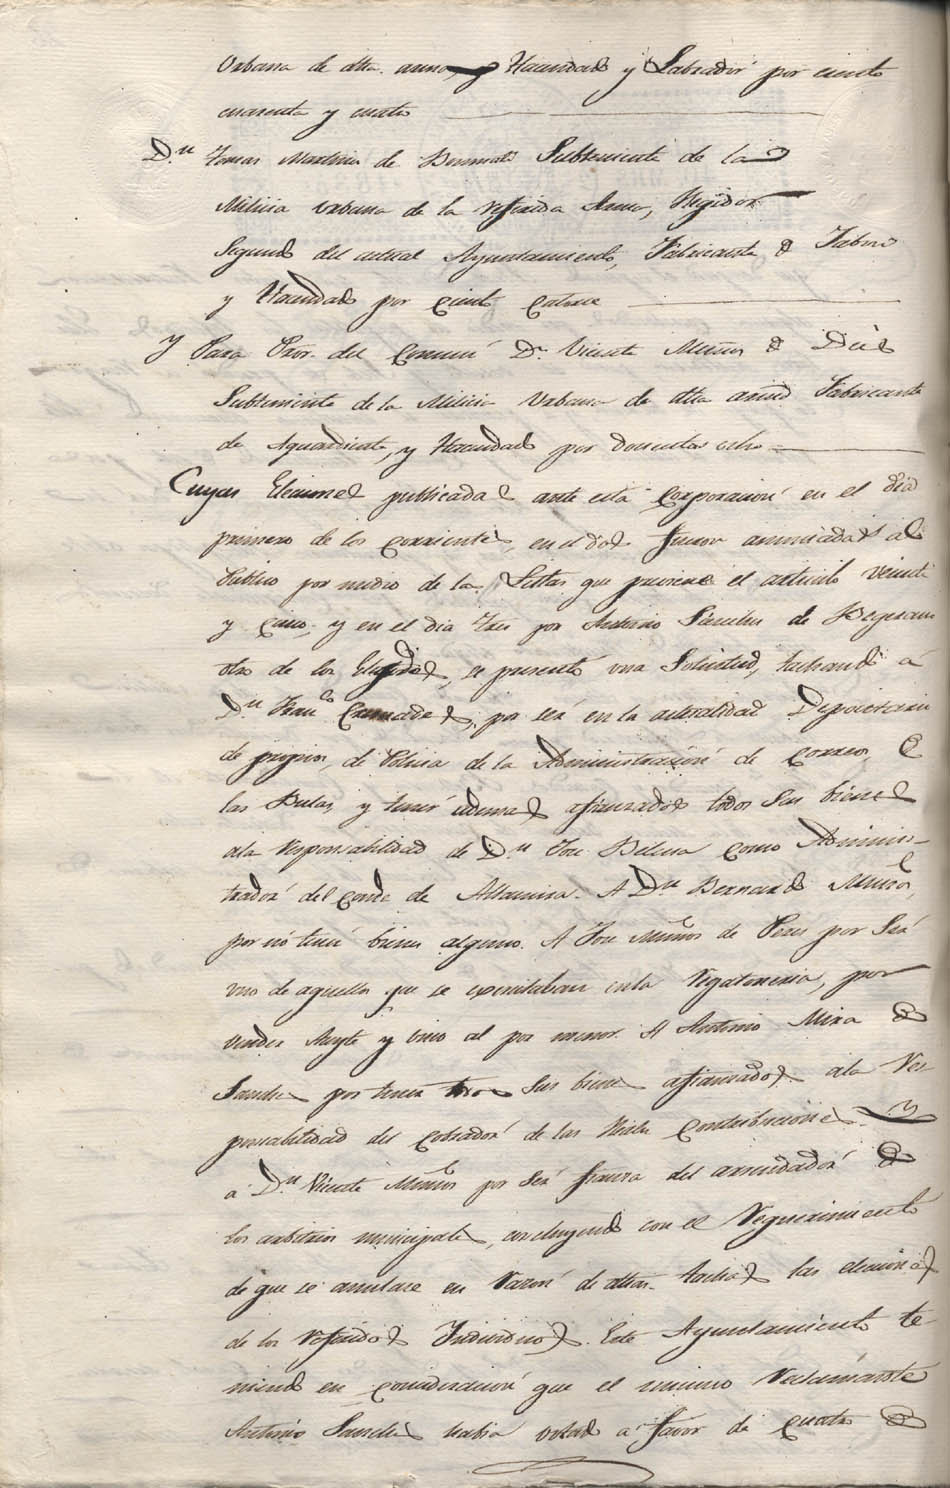 Urbana de dha. arma, y Hacendado y Labrador por ciento
cuarenta y cuatro
D.n Tomas Martinez de Subteniente de la
Milicia urbana de la referida Arma, Regidor
Segundo del actual Ayuntamiento, Fabricante de Jabon
y Hacendado por ciento catorce
Y Para Pror. del Comun D.n Vicente Muñoz de
Subteniente de la Milicia Urbana de dha arma Fabricante
de Aguardiente, y Hacendado por doscientos ocho
Cuyas Elecciones publicadas ante esta Corporacion en el dia
primero de los corrientes, en el dos fueron anunciadas al
Publico por medio de las Listas que previene el articulo veinte
y cinco, y en el dia tres por Antonio Sanchez de
otro de los Elegidos, se presentó una Solicitud, tachando á
D.n Fran.co Cremades, por ser en la actualidad Depositario
de propios, de Policia de la Administracion de Correos, de
las Bulas, y tener ademas afianzados todos sus bienes
ala responsabilidad de D.n Jose como Adminis-
trador del Conde de Altamira. A D.n Bernardo Muñoz,
por nó tener bienes algunos. A Jose Muñoz de Peres por Ser
uno de aquellos que se en la Regatoneria, por
vender Aceyte y vino al por menor. A Antonio Mira de
Sanchez por tener todos sus bienes afianzados ala Res-
ponsabilidad del Cobrador de las Reales Contribuciones. Y
a D.n Vicente Muñoz por Ser fianza del arrendador de
los arbitrios municipales, concluyendo con el Requerimiento
de que se anulase en Razon de dhas. tachas las elecciones
de los referidos Individuos. Este Ayuntamiento te-
niendo en consideracion que el mismo Reclamante
Antonio Sanchez habia votado a favor de cuatro de